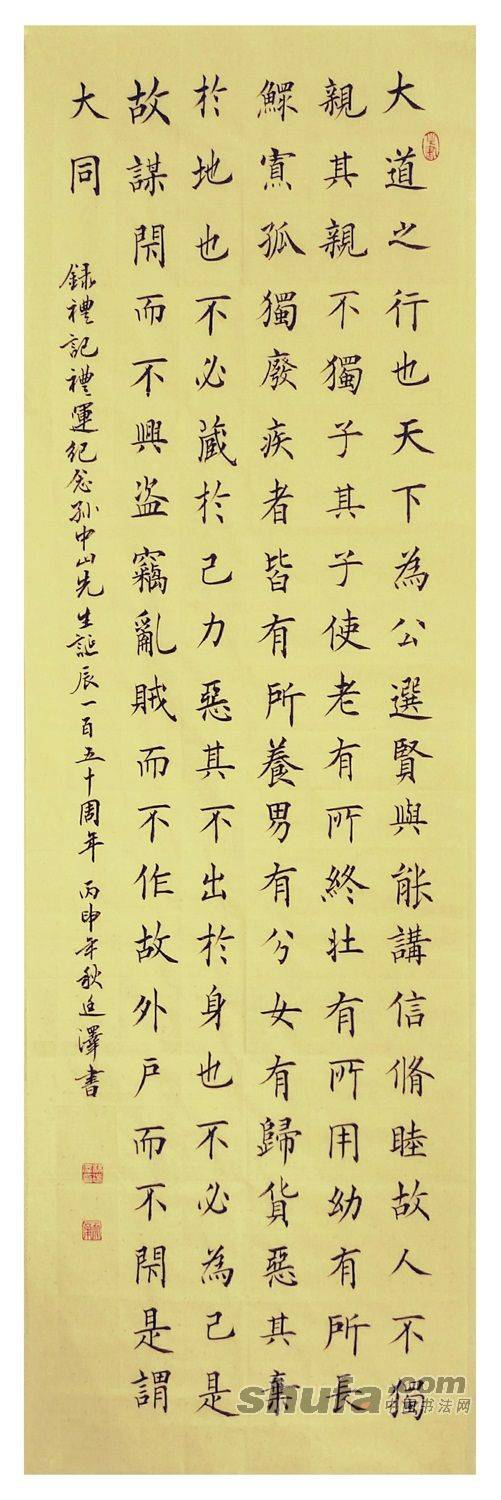 大道之行也天下為公選賢與能講信脩睦故人不獨
親其親不獨子其子使老有所終壯有所用幼有所長
鰥寡孤獨廢疾者皆有所養男有分女有歸貨惡其棄
於地也不必藏於己力惡其不出於身也不必為己是
故謀閇而不興盜竊亂賊而不作故外戶而不閇是謂
大同
録禮記禮運紀念孫中山先生誕辰一百五十周年 丙申年秋廷澤書
shufa.com
中国书法网